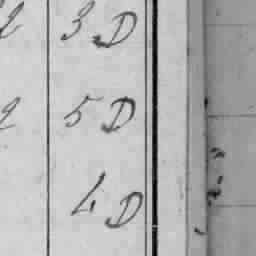 2 3 D
2 5 D
4 D